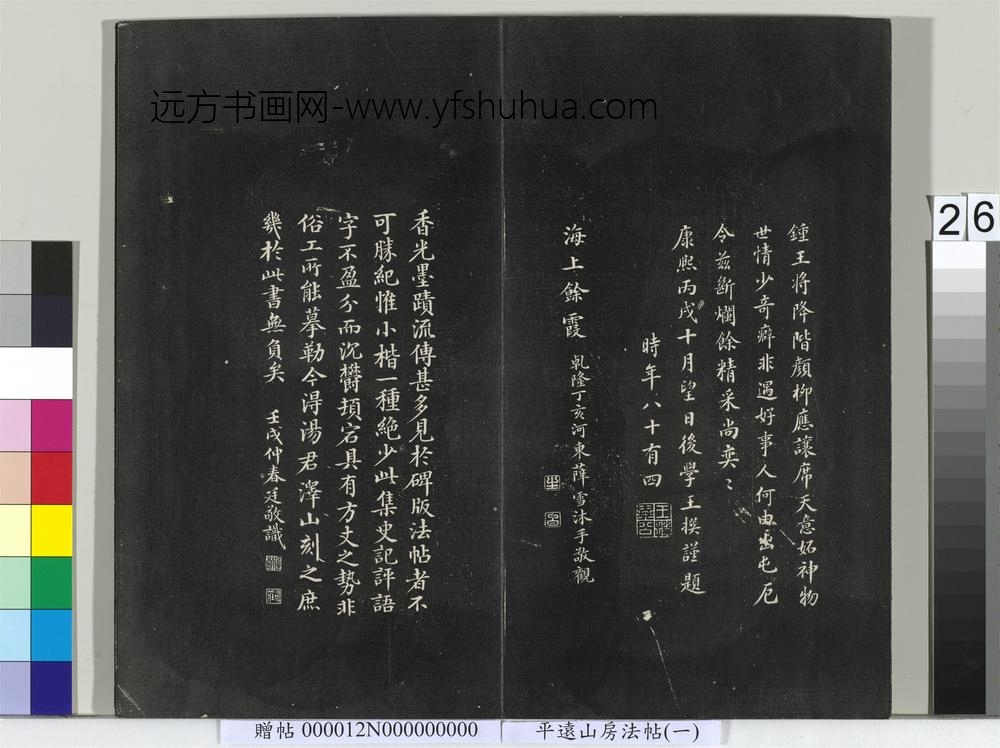 远方书画网-www.yfshuhua.com
26
鍾王將降階顏柳應讓席天意妬神物
世情少奇癖非遇好事人何由出屯厄
令茲斷爛餘精采尚奕〻
康熙丙戌十月望日後學王撰謹題
時年八十有四
海上餘霞
乾隆丁亥河東薛雪沐手敬觀
香光墨蹟流傳甚多見於碑版法帖者不
可勝紀惟小楷一種絶少此集史記評語
字不盈分而沉欝頓宕具有方丈之勢非
俗工所能摹勒今淂湯君澤山刻之庶
幾於此書無負矣
壬戌仲春廷敬識
贈帖 000012N000000000
平遠山房法帖(一)